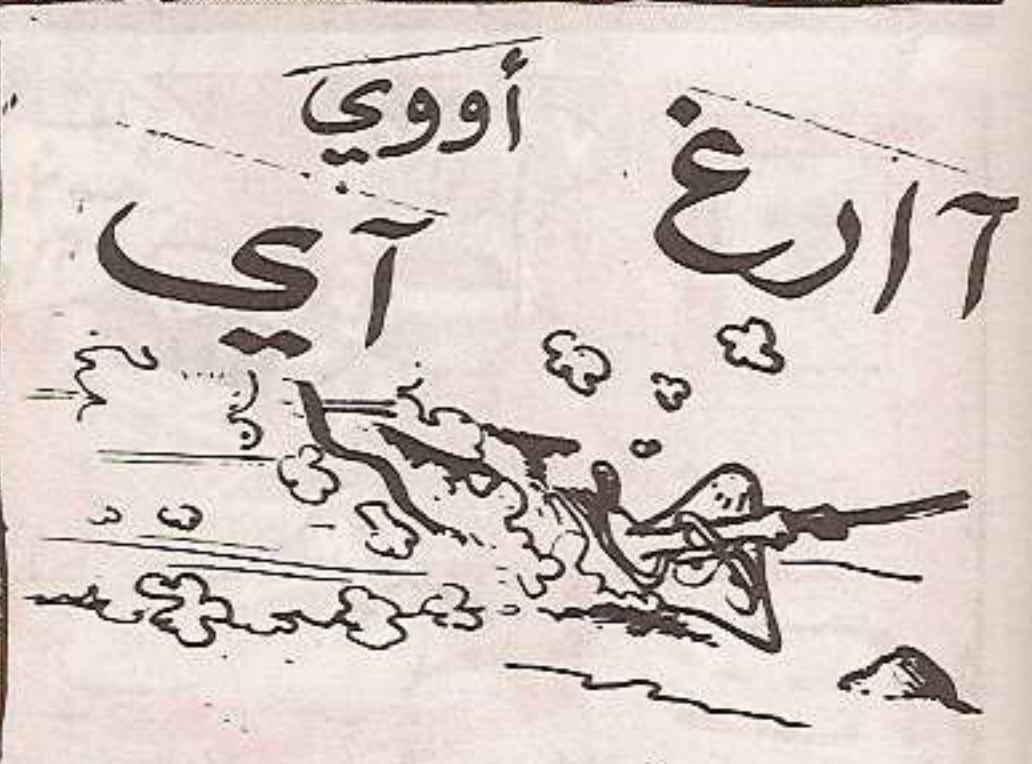 آ ارغ
أووي
آي